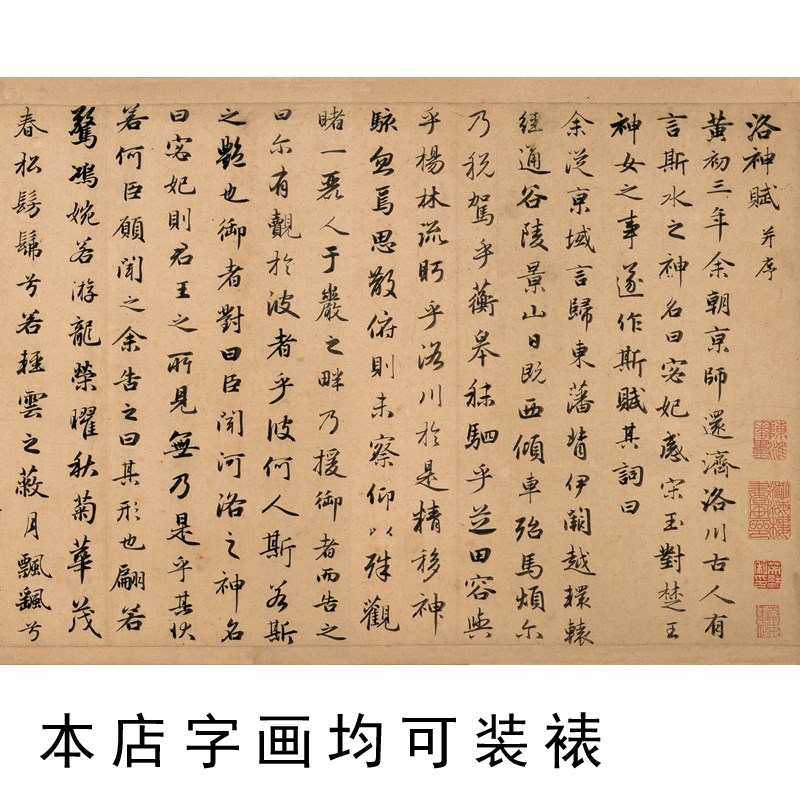 洛神賦 并序
黃初三年余朝京師還濟洛川古人有
言斯水之神名曰宓妃感宋玉對楚王
神女之事遂作斯賦其詞曰
余從京域言歸東藩背伊闕越轘轅
經通谷陵景山日既西傾車殆馬煩尔
乃稅駕乎蘅皋秣駟乎芝田容與
乎楊林流眄乎洛川於是精移神
駭忽焉思散俯則未察仰以殊觀
睹一麗人于巖之畔乃援御者而告之
曰尔有覿於彼者乎彼何人斯若斯
之艷也御者對曰臣聞河洛之神名
曰宓妃則君王之所見無乃是乎其狀
若何臣願聞之余告之曰其形也翩若
驚鴻婉若游龍榮曜秋菊華茂
春松髣髴兮若輕雲之蔽月飄飄兮
本店字画均可装裱